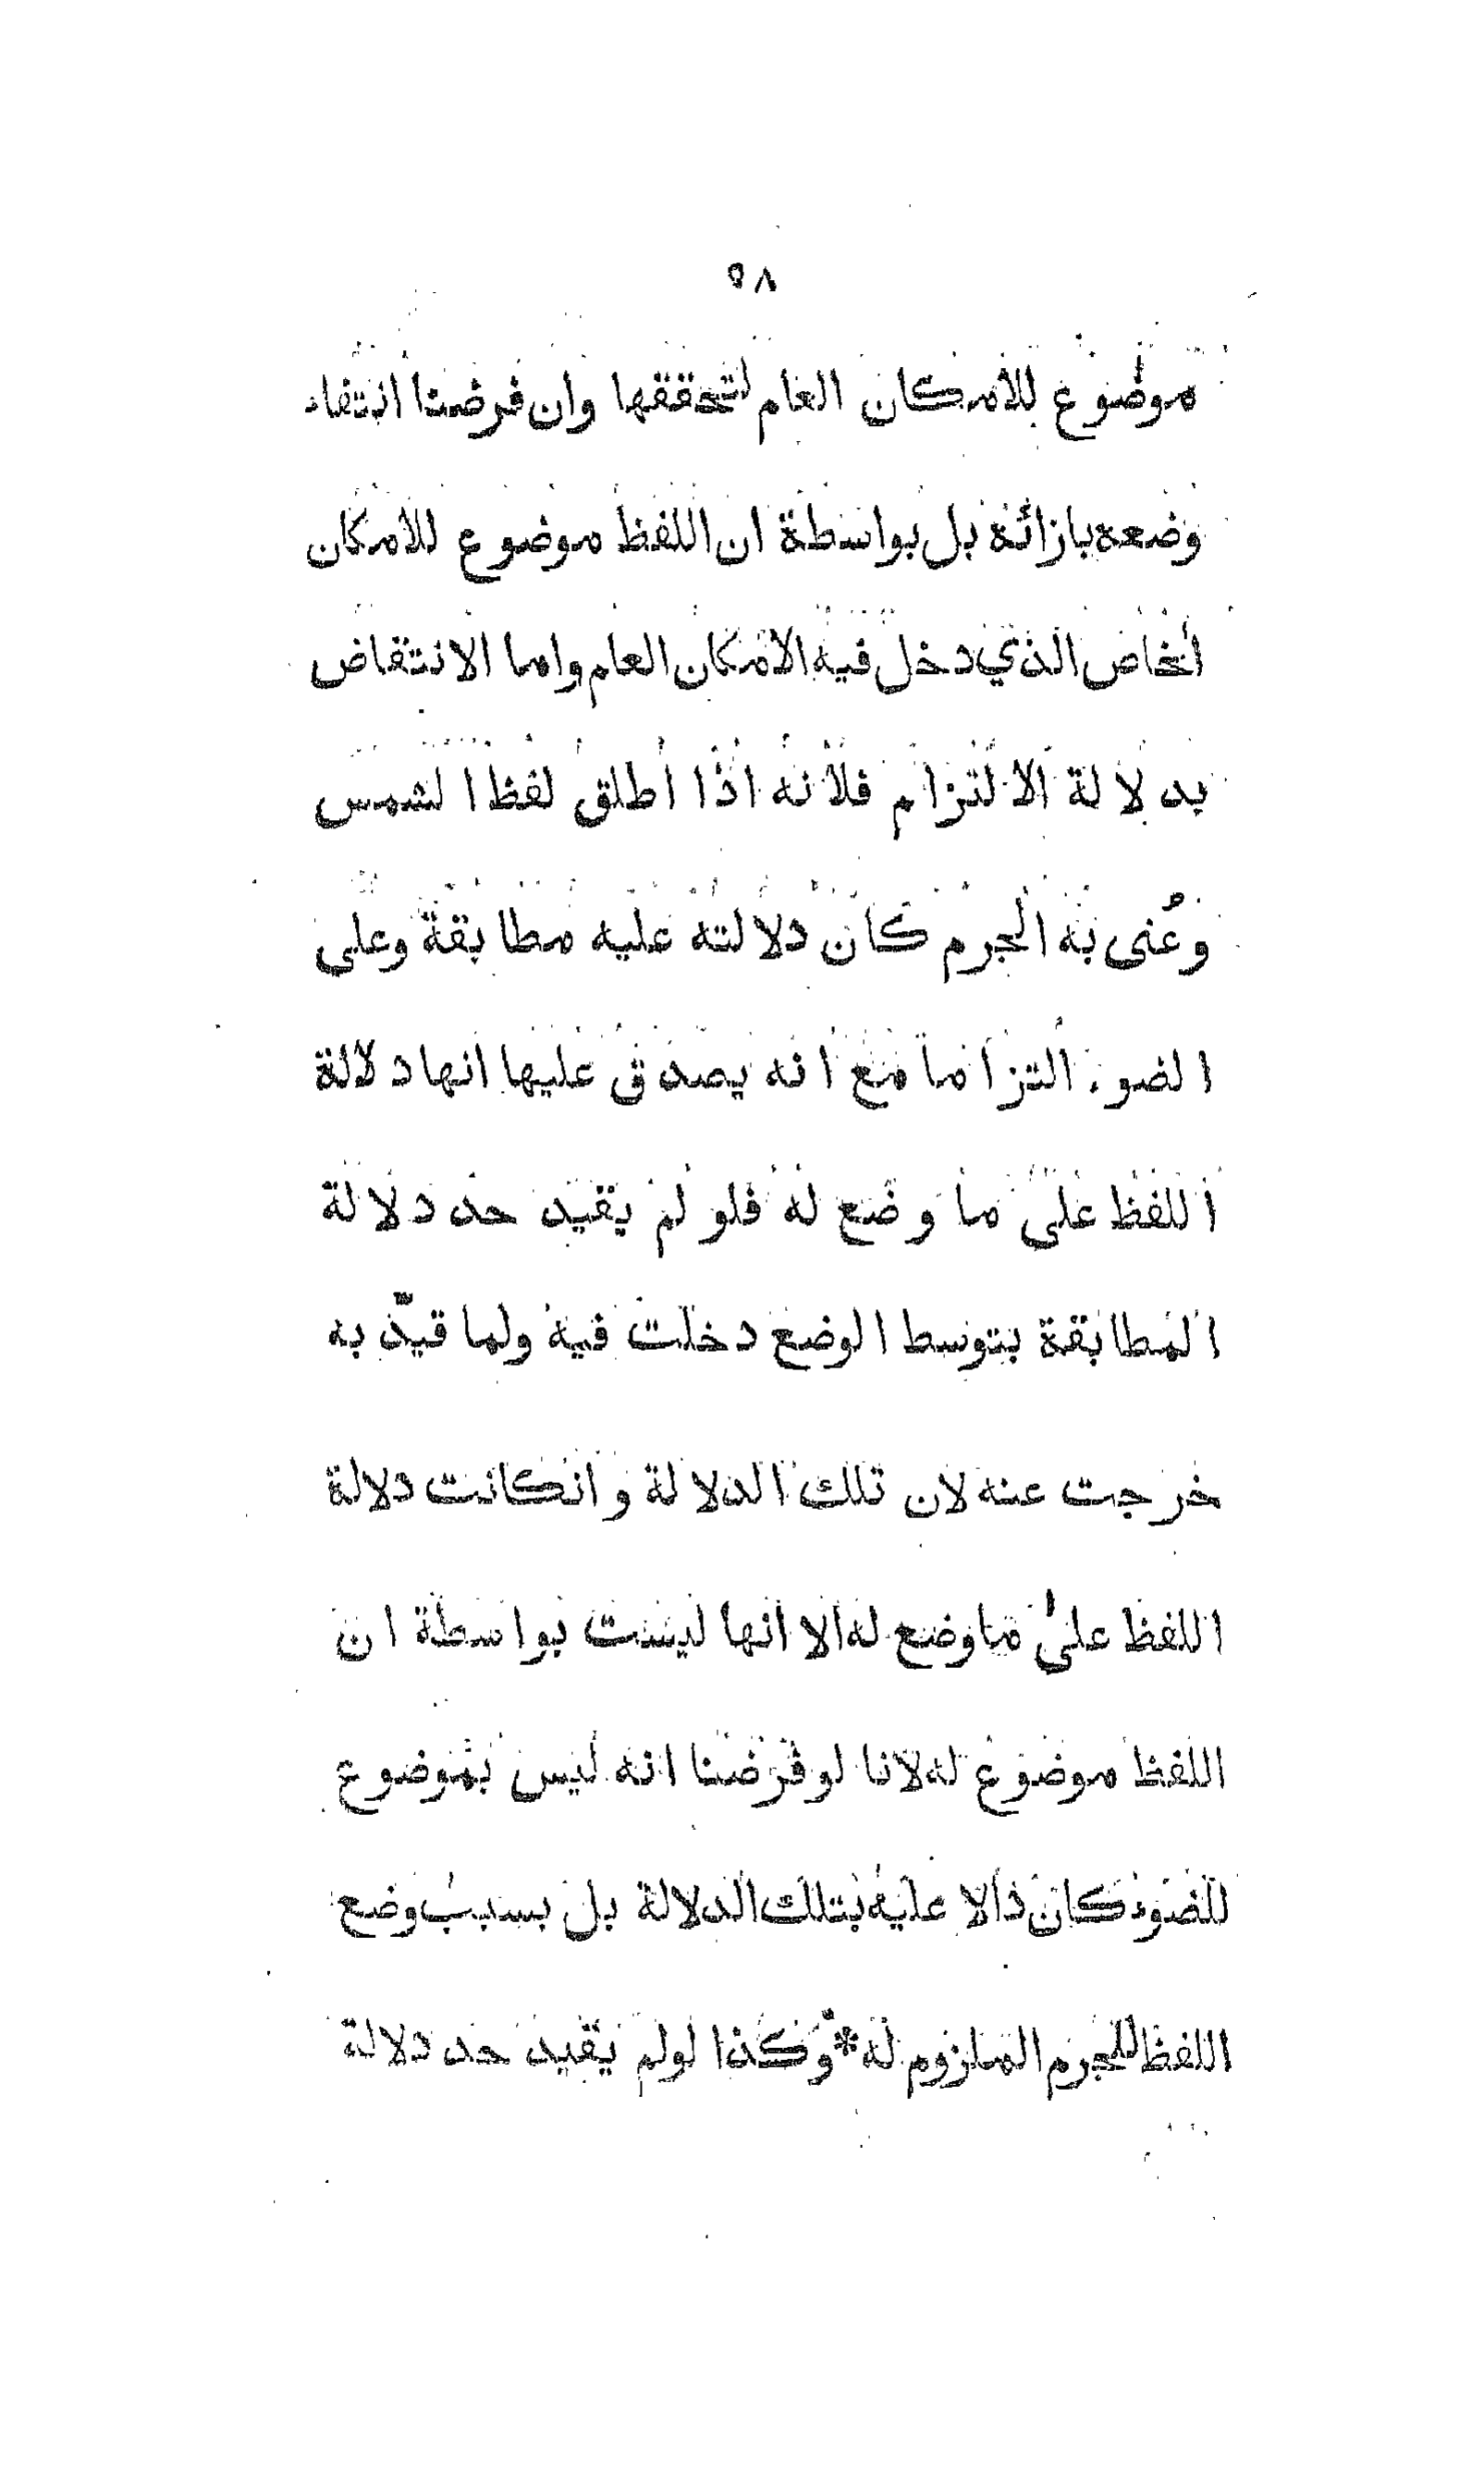 ٥٨
موضوع للامكان العام لتحققها وان فرضنا انتفاء
وضعه بازائه بل بواسطة ان اللفظ موضوع للامكان
الخاص الذي دخل فيه الامكان العام واما الانتقاض
بدلالة الالتزام فلانه اذا اطلق لفظ الشمس
وعُنى به الجرم كان دلالته عليه مطابقة وعلى
الضوء التزاما مع انه يصدق عليها انها دلالة
اللفظ على ما وضع له فلو لم يقيد حد دلالة
المطابقة بتوسط الوضع دخلت فيه ولما قيّد به
خرجت عنه لان تلك الدلالة وانكانت دلالة
اللفظ على ما وضع له الا انها ليست بواسطة ان
اللفظ موضوع له لانا لو فرضنا انه ليس بموضوع
للضوء كان دالا عليه بتلك الدلالة بل بسبب وضع
اللفظ للجرم الملزوم له * وكذا لو لم يقيد حد دلالة